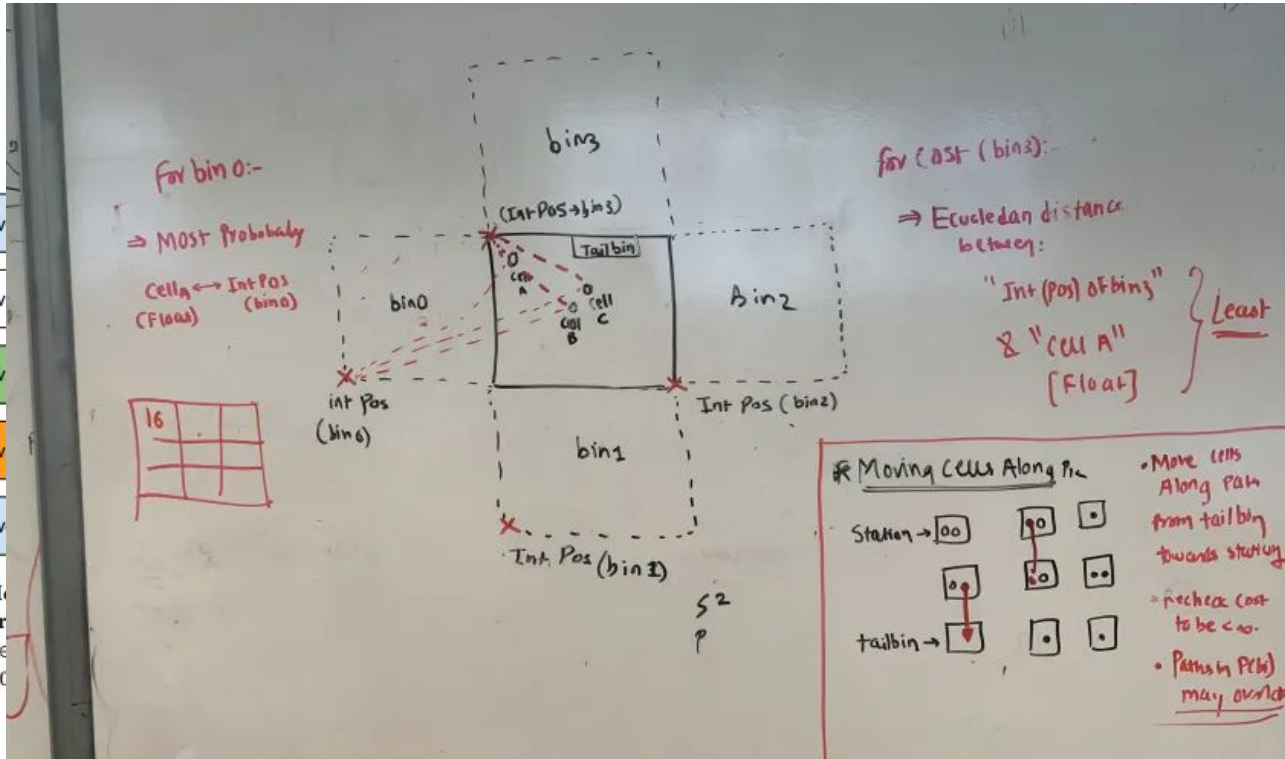 For bin 0:-
⇒ Most Probobaly
Cell A ↔ Int Pos
(Float) (bin0)
16
bin3
(Int Pos → bin3)
Tailbin
bin0
Cell
A
Cell
B
Cell
C
Bin2
int Pos
(bin0)
Int Pos (bin2)
bin1
Int Pos (bin1)
S²
P
for Cost (bin3):-
⇒ Ecucledan distance
between:
"Int (pos) of bin3"
& "Cell A"
[Float]
Least
* Moving Cells Along
Station →
tailbin →
• Move cells
Along Path
from tailbin
towards station
• recheck Cost
to be < ∞.
• Paths in P(bi)
may